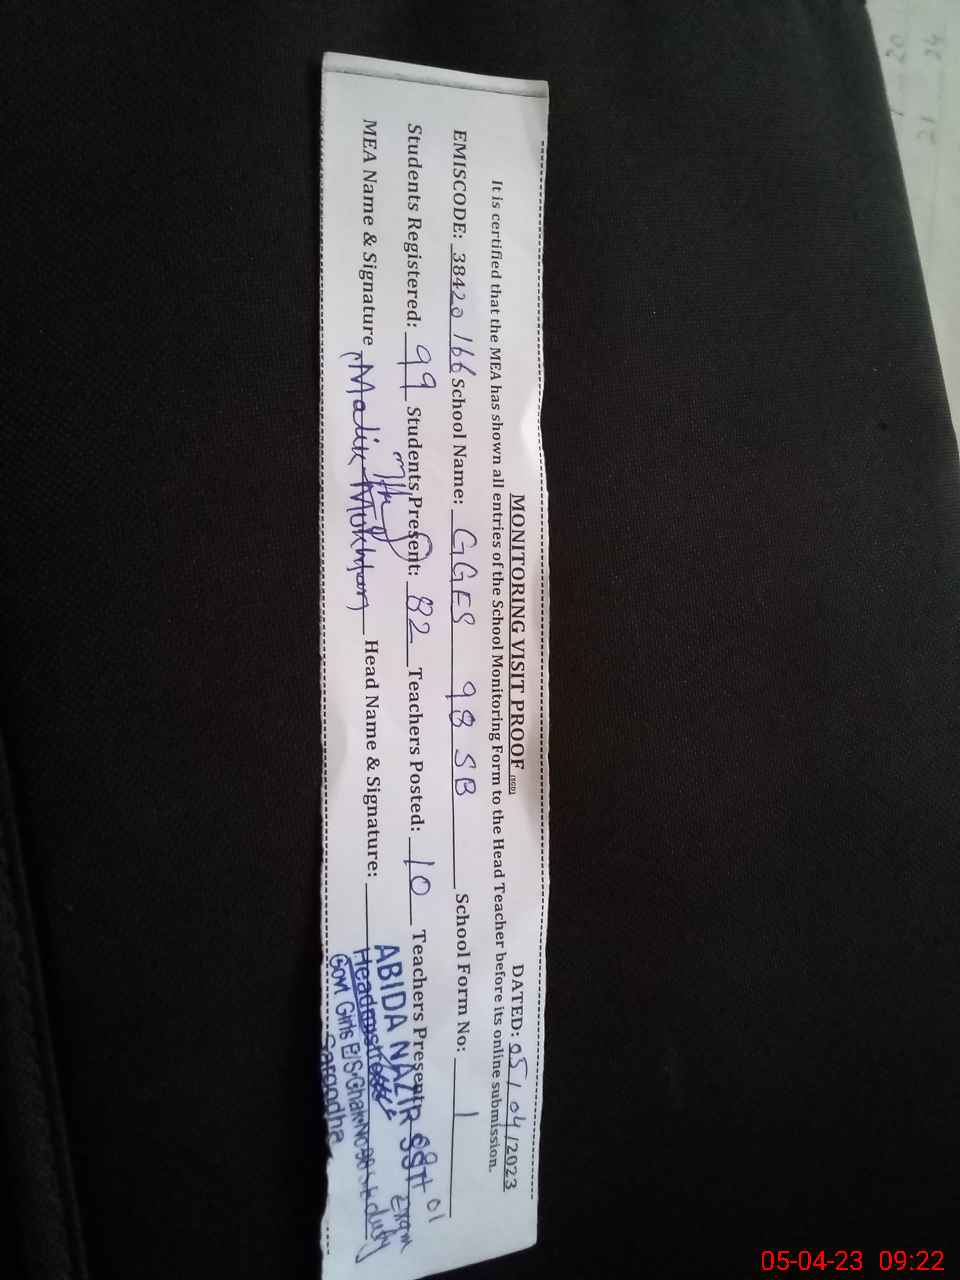 MONITORING VISIT PROOF (SED) DATED: 05/04/2023
It is certified that the MEA has shown all entries of the School Monitoring Form to the Head Teacher before its online submission.
EMISCODE: 38420166 School Name: GGES 98 SB School Form No: 1
Students Registered: 99 Students Present: 82 Teachers Posted: 10 Teachers Present: 09+01
MEA Name & Signature Malik Mukhtar Head Name & Signature:
Exam duty
ABIDA NAZIR SST
Headmistress
Govt Girls E/S Chak No 98
Sargodha
05-04-23 09:22